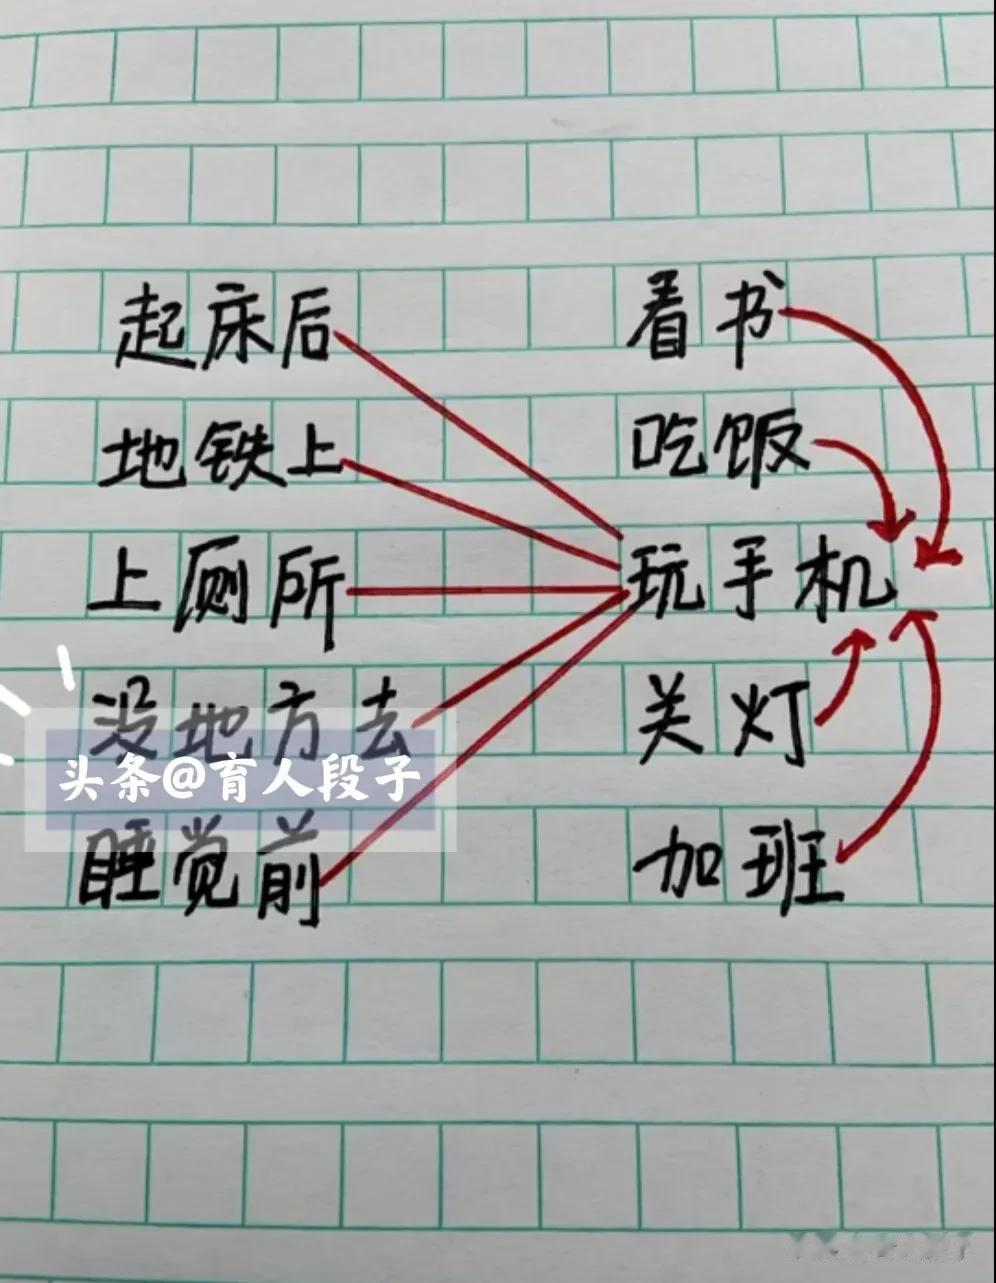 起床后 看书
地铁上 吃饭
上厕所 玩手机
没地方去 关灯
头条@育人段子
睡觉前 加班